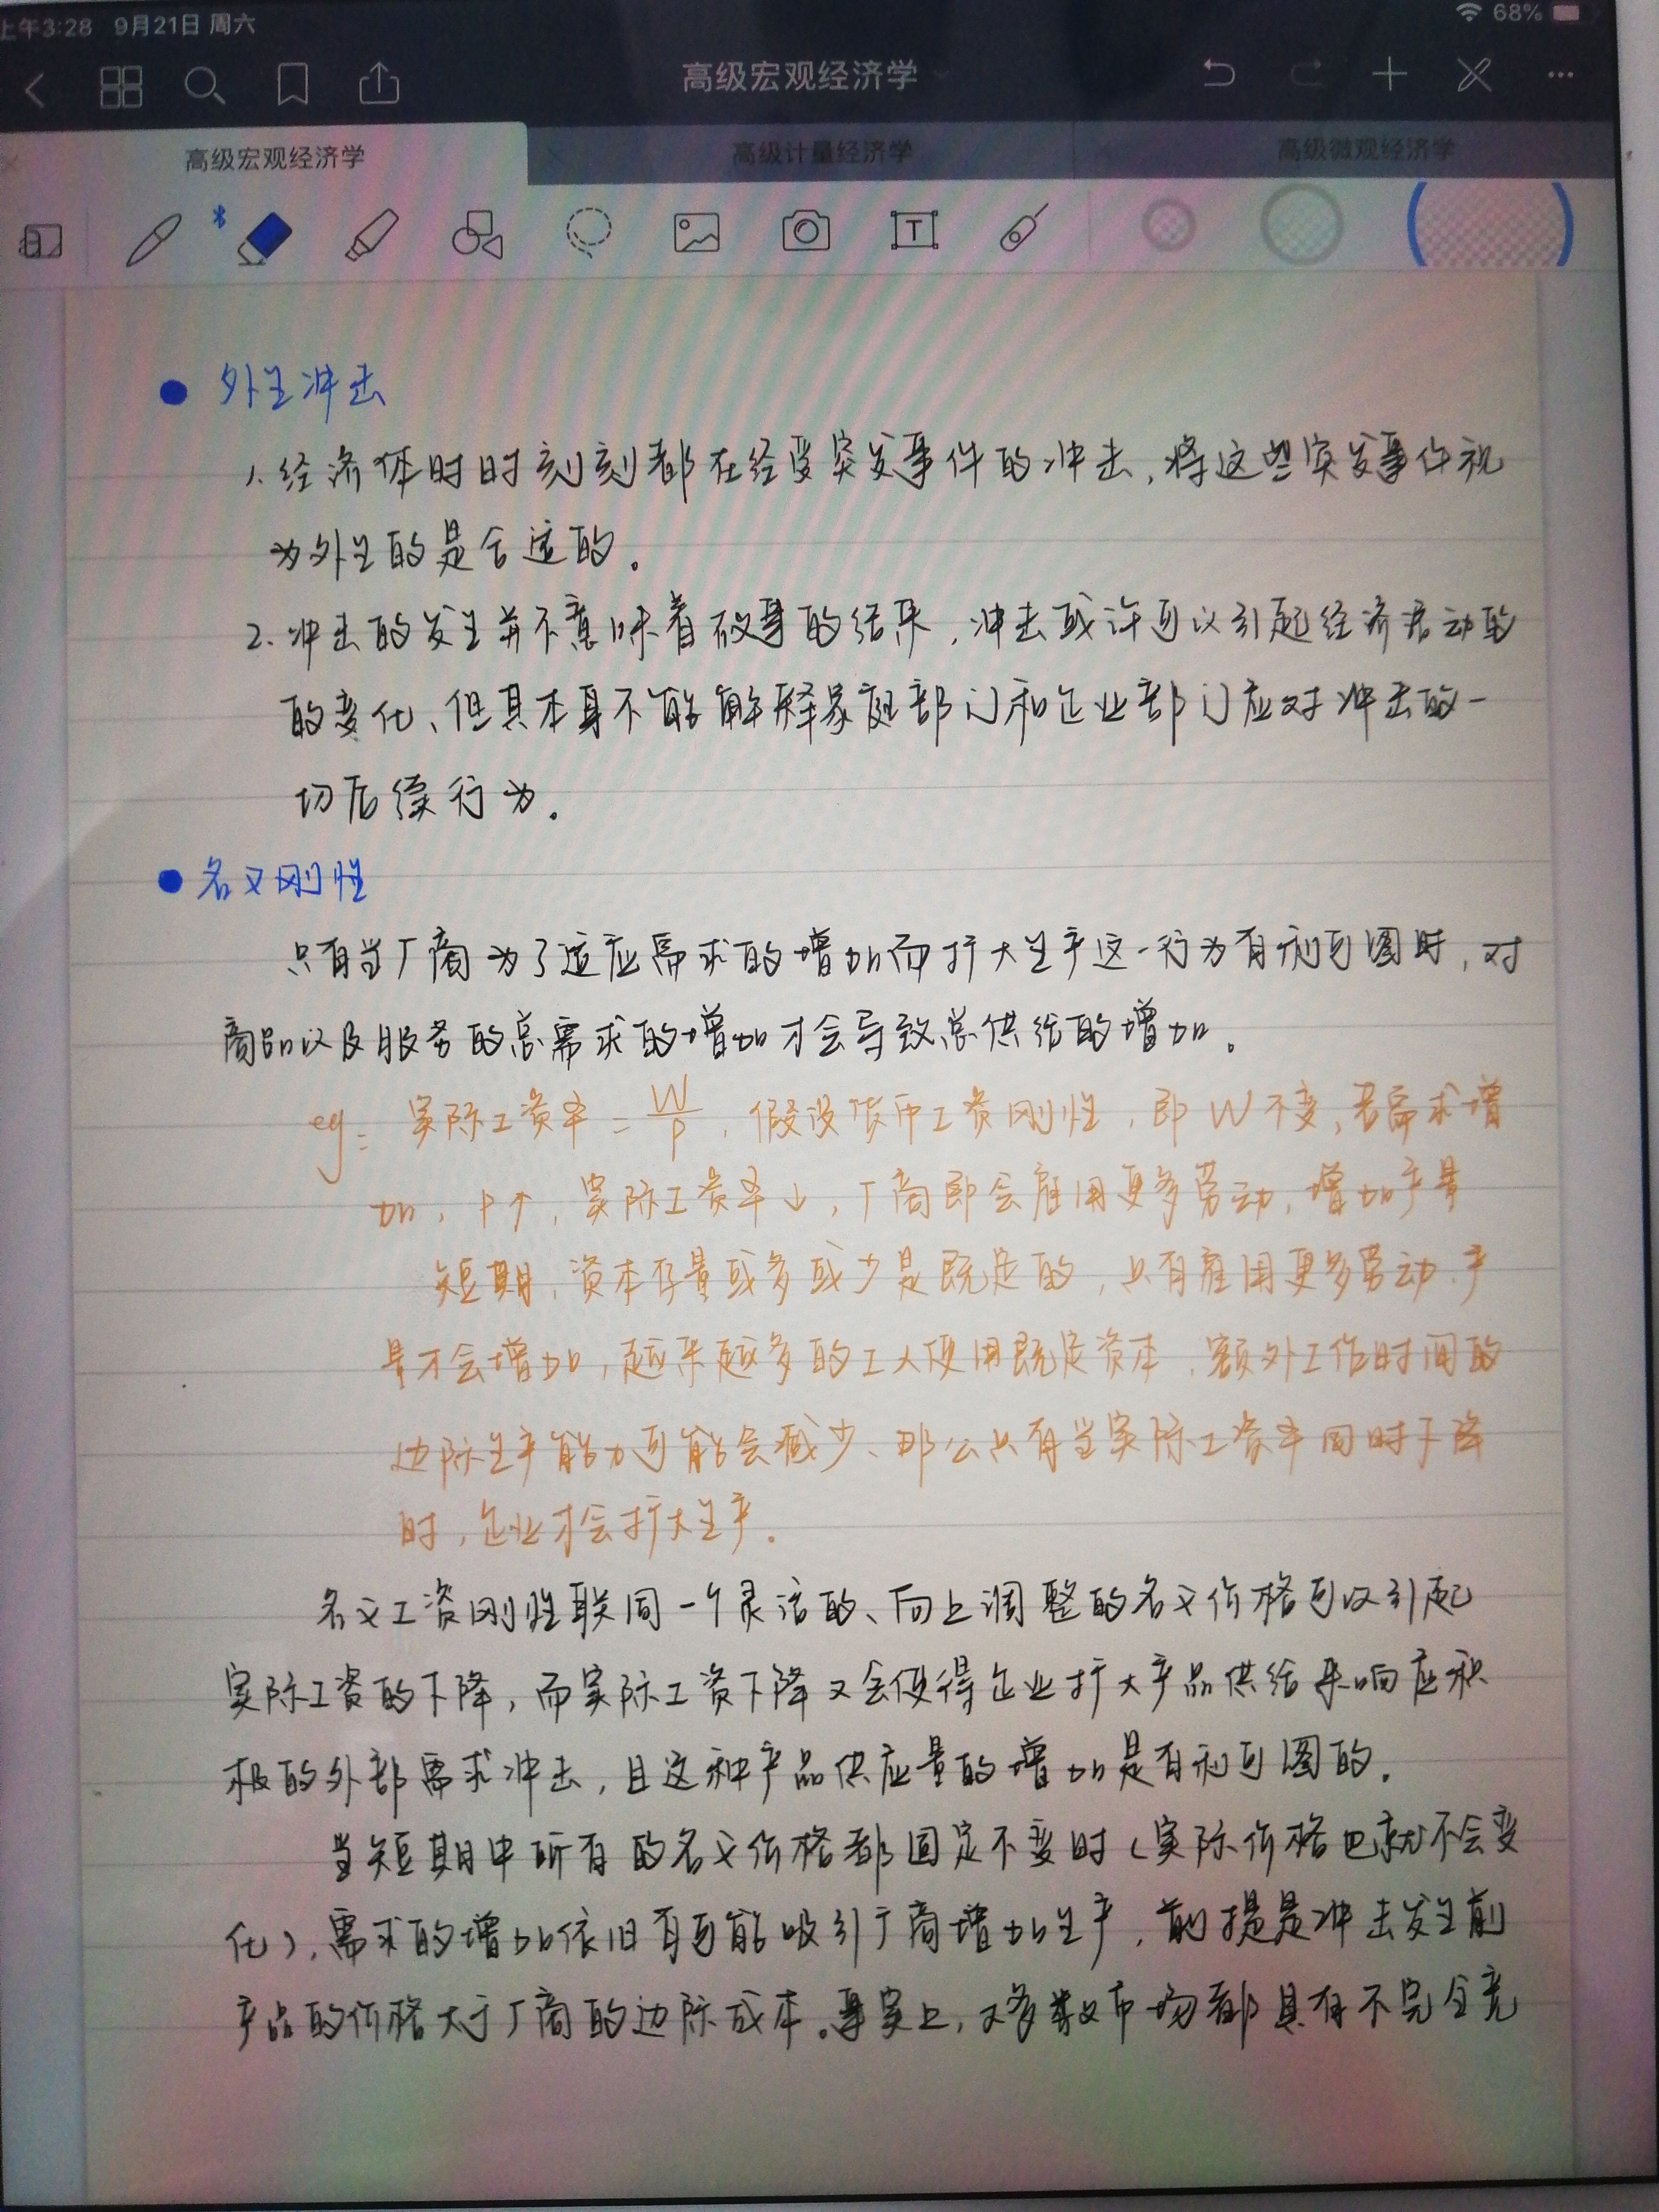 上午3:28 9月21日 周六
68%
高级宏观经济学
高级宏观经济学 高级计量经济学 高级微观经济学
外生冲击
1. 经济体时时刻刻都在经受突发事件的冲击,将这些突发事件视
为外生的是合适的。
2. 冲击的发生并不意味着故事的结果,冲击或许可以引起经济活动的
的变化、但其本身不能解释家庭部门和企业部门应对冲击的一
切后续行为。
名义刚性
只有当厂商为了适应需求的增加而扩大生产这一行为有利可图时,对
商品以及服务的总需求的增加才会导致总供给的增加。
eg: 实际工资率 = W/P,假设货币工资刚性,即W不变,若需求增
加,P↑,实际工资率↓,厂商即会雇用更多劳动,增加产量
短期,资本存量或多或少是既定的,只有雇用更多劳动,产
量才会增加,越来越多的工人使用既定资本,额外工作时间的
边际生产能力可能会减少、那么只有当实际工资率同时下降
时,企业才会扩大生产。
名义工资刚性联同一个灵活的、向上调整的名义价格可以引起
实际工资的下降,而实际工资下降又会使得企业扩大产品供给来响应积
极的外部需求冲击,且这种产品供应量的增加是有利可图的。
当短期中所有的名义价格都固定不变时(实际价格也就不会变
化),需求的增加依旧有可能吸引厂商增加生产,前提是冲击发生前
产品的价格大于厂商的边际成本。事实上,大多数市场都具有不完全竞